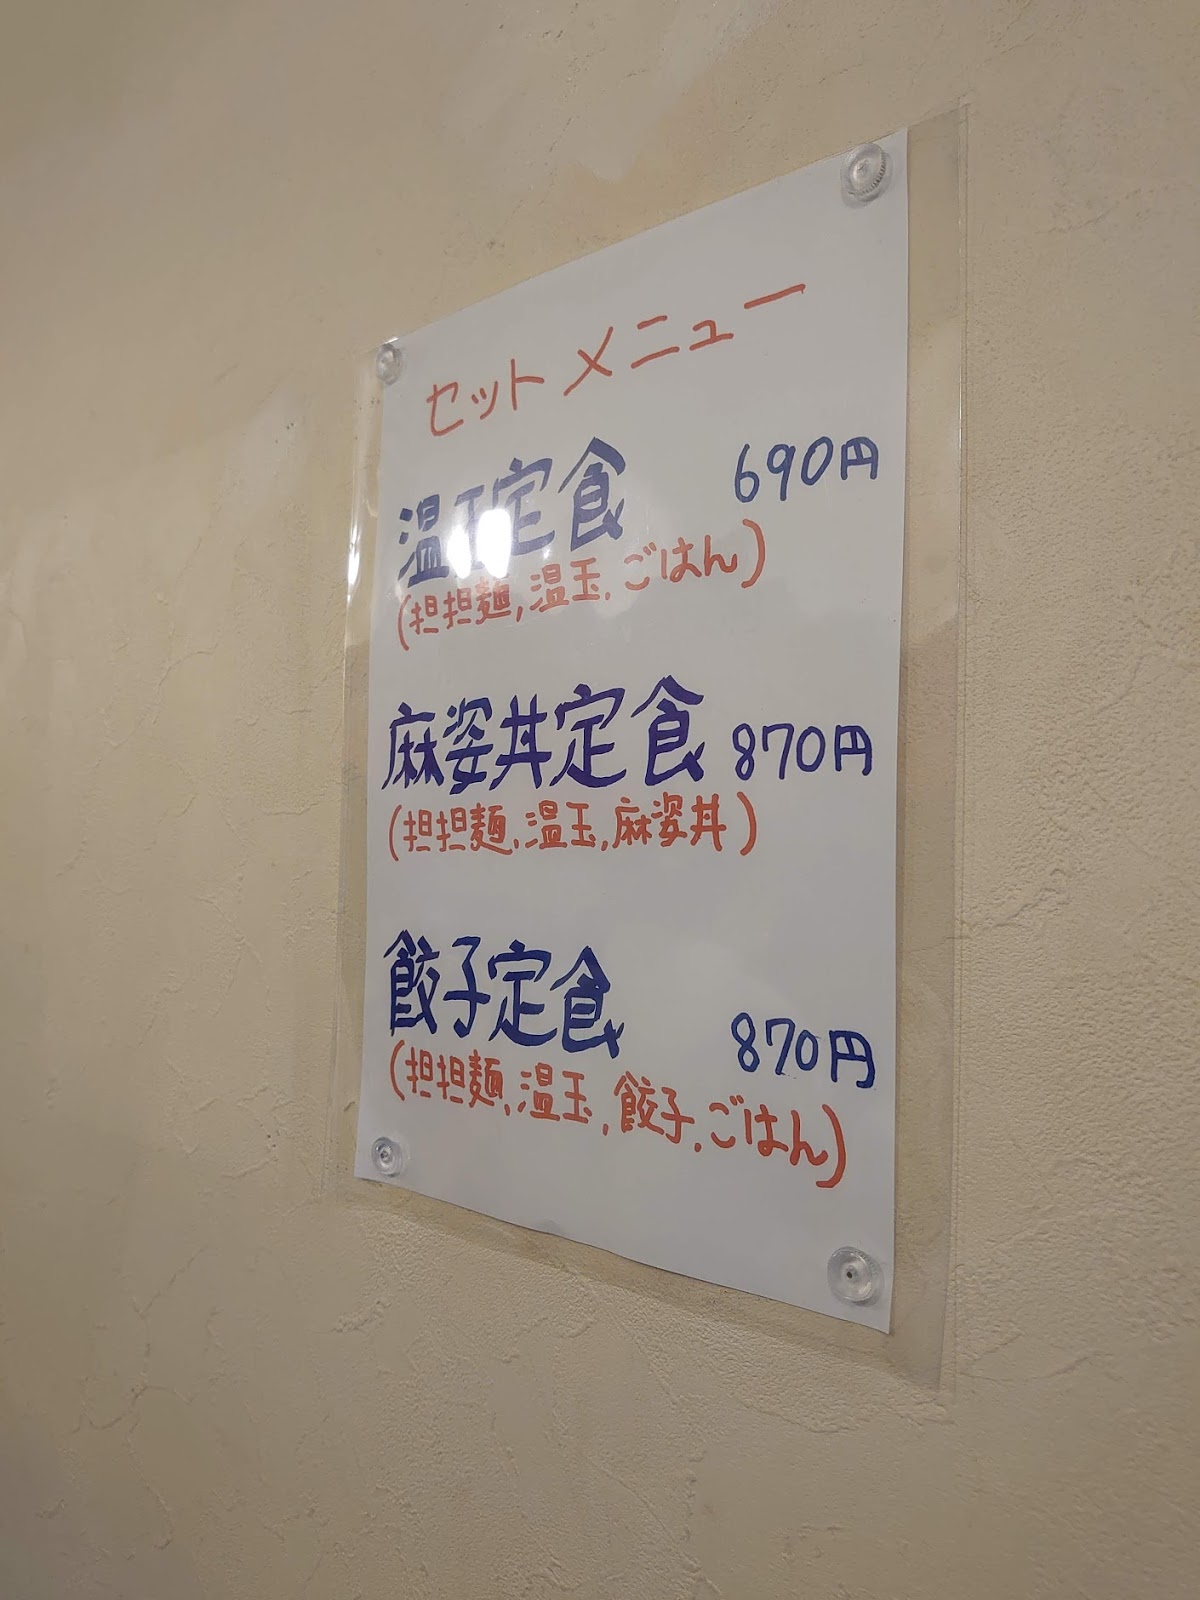 セットメニュー
温玉定食 690円
(担担麺,温玉,ごはん)
麻婆丼定食 870円
(担担麺,温玉,麻婆丼)
餃子定食 870円
(担担麺,温玉,餃子,ごはん)